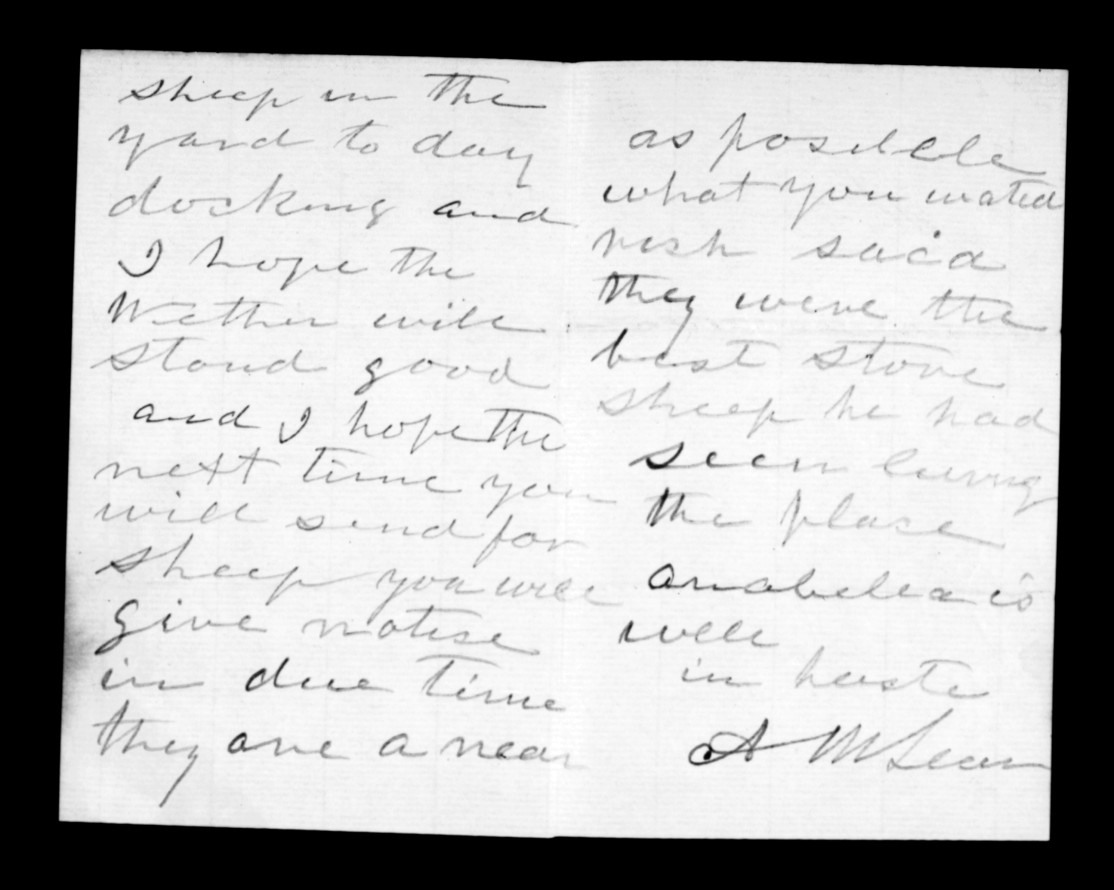 sheep in the
yard to day
docking and
I hope the
Wether will
stand good
and I hope the
next time you
will send for
sheep you will
give notise
in due time
they are a near
as posible
what you wated
said
they were the
best store
sheep he had
seen living
the plase
anabella is
well
in haste
A McLean